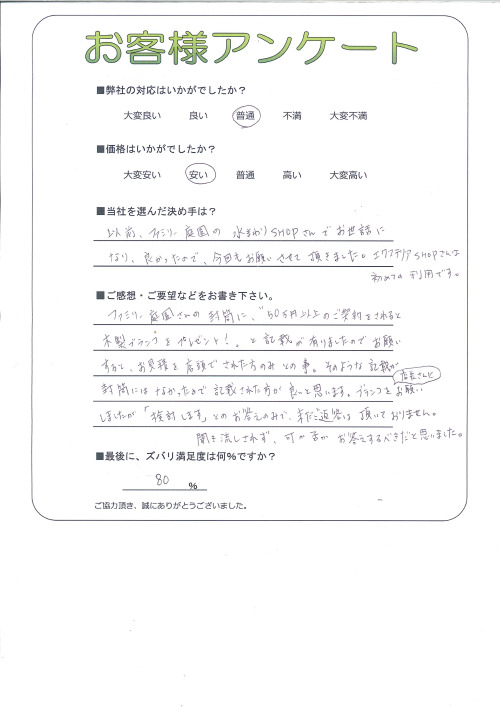 お客様アンケート
■弊社の対応はいかがでしたか？
大変良い 良い 普通 不満 大変不満
■価格はいかがでしたか？
大変安い 安い 普通 高い 大変高い
■当社を選んだ決め手は？
以前、ファミリー庭園の 水まわりSHOPさんでお世話に
なり、良かったので、今回もお願いさせて頂きました。エクステリアSHOPさんは
初めての利用です。
■ご感想・ご要望などをお書き下さい。
ファミリー庭園さんの封筒に、"50万円以上のご契約をされると
木製プランコをプレゼント！"と記載が有りましたのでお願い
すると、お見積を店頭でされた方のみとの事。そのような記載が
封筒にはなかったので記載された方が良いと思います。ブランコをお願い
店長さんに
しましたが「検討します」とのお答えのみで、未だご返答は頂いておりません。
聞き流しされず、可か否かお答えするべきだと思いました。
■最後に、ズバリ満足度は何％ですか？
80 ％
ご協力頂き、誠にありがとうございました。